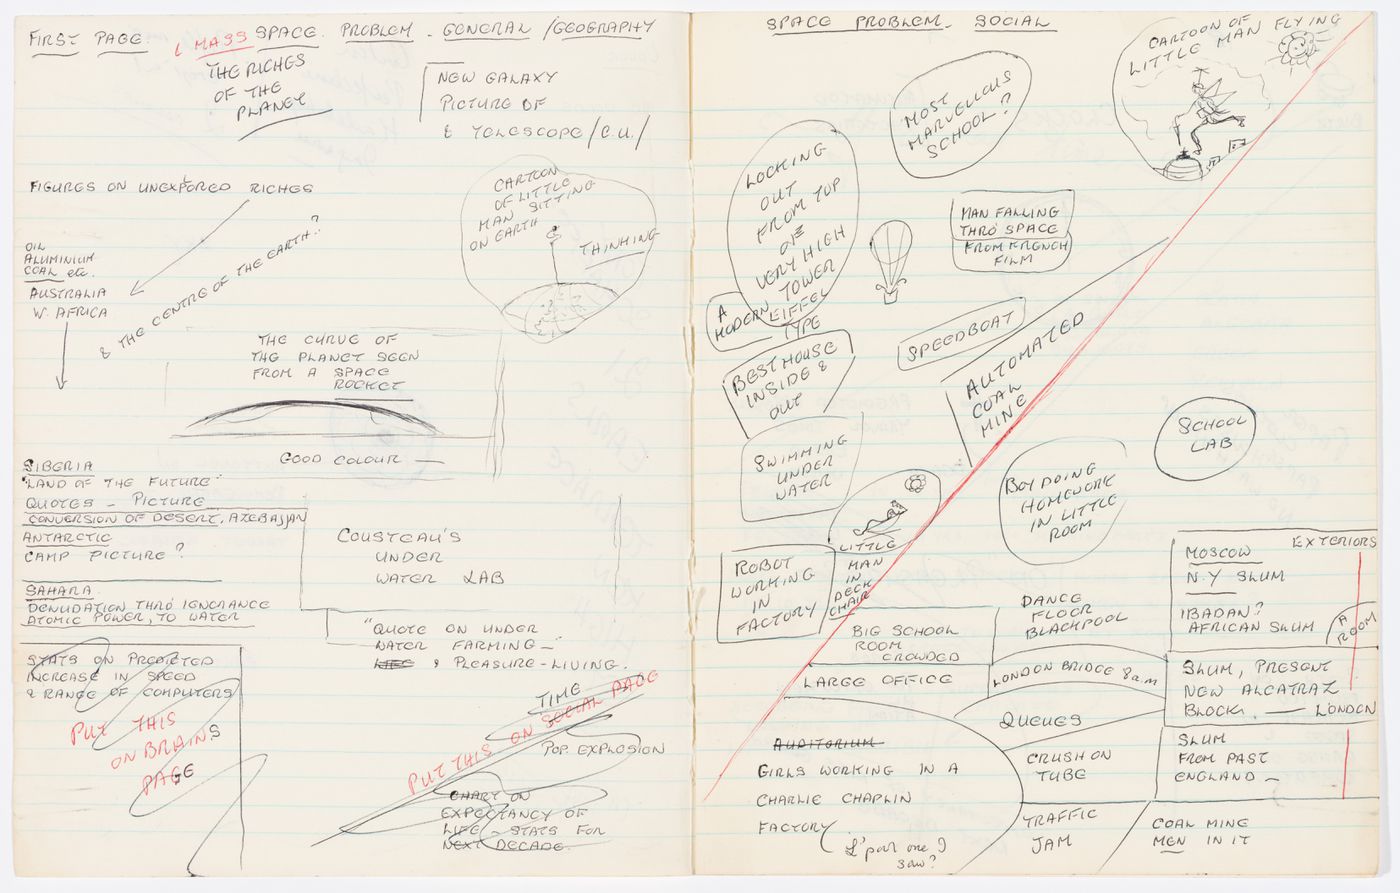 FIRST PAGE. MASS SPACE. PROBLEM - GENERAL /GEOGRAPHY
THE RICHES
OF THE
PLANET
NEW GALAXY
PICTURE OF
& TELESCOPE/C.U./
FIGURES ON UNEXPORED RICHES
OIL
ALUMINIUM
COAL etc.
AUSTRALIA
W. AFRICA
& THE CENTRE OF THE EARTH?
CARTOON
OF LITTLE
MAN SITTING
ON EARTH
THINKING
THE CURVE OF
THE PLANET SEEN
FROM A SPACE
ROCKET
GOOD COLOUR —
SIBERIA
"LAND OF THE FUTURE"
QUOTES - PICTURE
CONVERSION OF DESERT, AZEBAJJAN
ANTARCTIC
CAMP PICTURE?
SAHARA
DENUDATION THRO' IGNORANCE
ATOMIC POWER, TO WATER
COUSTEAU'S
UNDER
WATER LAB
"QUOTE ON UNDER
WATER FARMING -
LIFE & PLEASURE-LIVING.
STATS ON PREDICTED
INCREASE IN SPEED
& RANGE OF COMPUTERS
PUT THIS
ON BRAINS
PAGE
TIME
PUT THIS ON SOCIAL PAGE
POP. EXPLOSION
CHART ON
EXPECTANCY OF
LIFE - STATS FOR
NEXT DECADE.
SPACE PROBLEM. SOCIAL
CARTOON OF
LITTLE MAN FLYING
MOST
MARVELLOUS
SCHOOL?
LOOKING
OUT
FROM TOP
OF
VERY HIGH
TOWER
EIFFEL
TYPE
A
MODERN
MAN FALLING
THRO' SPACE
FROM FRENCH
FILM
SPEEDBOAT
BEST HOUSE
INSIDE &
OUT
AUTOMATED
COAL
MINE
SCHOOL
LAB
SWIMMING
UNDER
WATER
BOY DOING
HOMEWORK
IN LITTLE
ROOM
LITTLE
MAN
IN
DECK
CHAIR
ROBOT
WORKING
IN
FACTORY
EXTERIORS
MOSCOW
N.Y SLUM
IBADAN?
AFRICAN SLUM
A
ROOM
BIG SCHOOL
ROOM
CROWDED
DANCE
FLOOR
BLACKPOOL
LARGE OFFICE
LONDON BRIDGE 8a.m
SLUM, PRESENT
NEW ALCATRAZ
BLOCK. — LONDON
QUEUES
AUDITORIUM
GIRLS WORKING IN A
CHARLIE CHAPLIN
FACTORY
CRUSH ON
TUBE
SLUM
FROM PAST
ENGLAND -
TRAFFIC
JAM
COAL MINE
MEN IN IT
one I
saw?